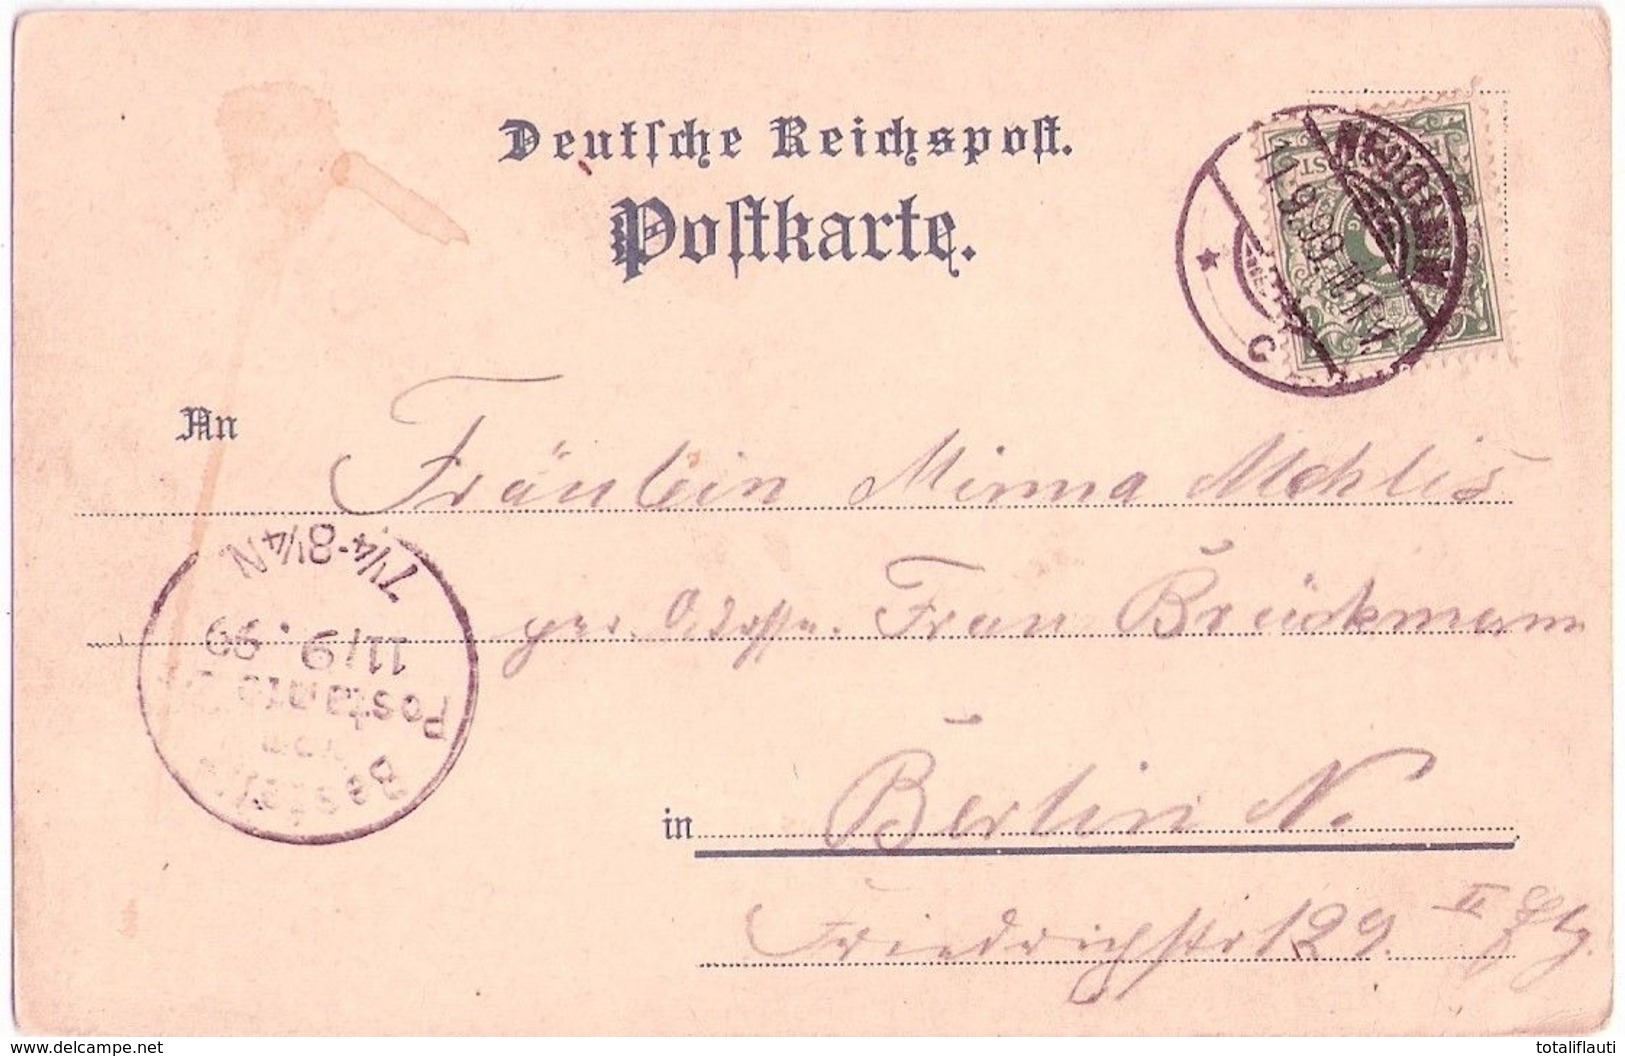 Deutsche Reichspost.
Postkarte.
11.9.99.
C
An
Fräulein Minna Mehlis
per. Adresse. Frau Brückmann
in Berlin N.
Friedrichstr 129. II
7¼-8¼N
11/9.99
Postamte
Bestellt
www.delcampe.net
totaliflauti